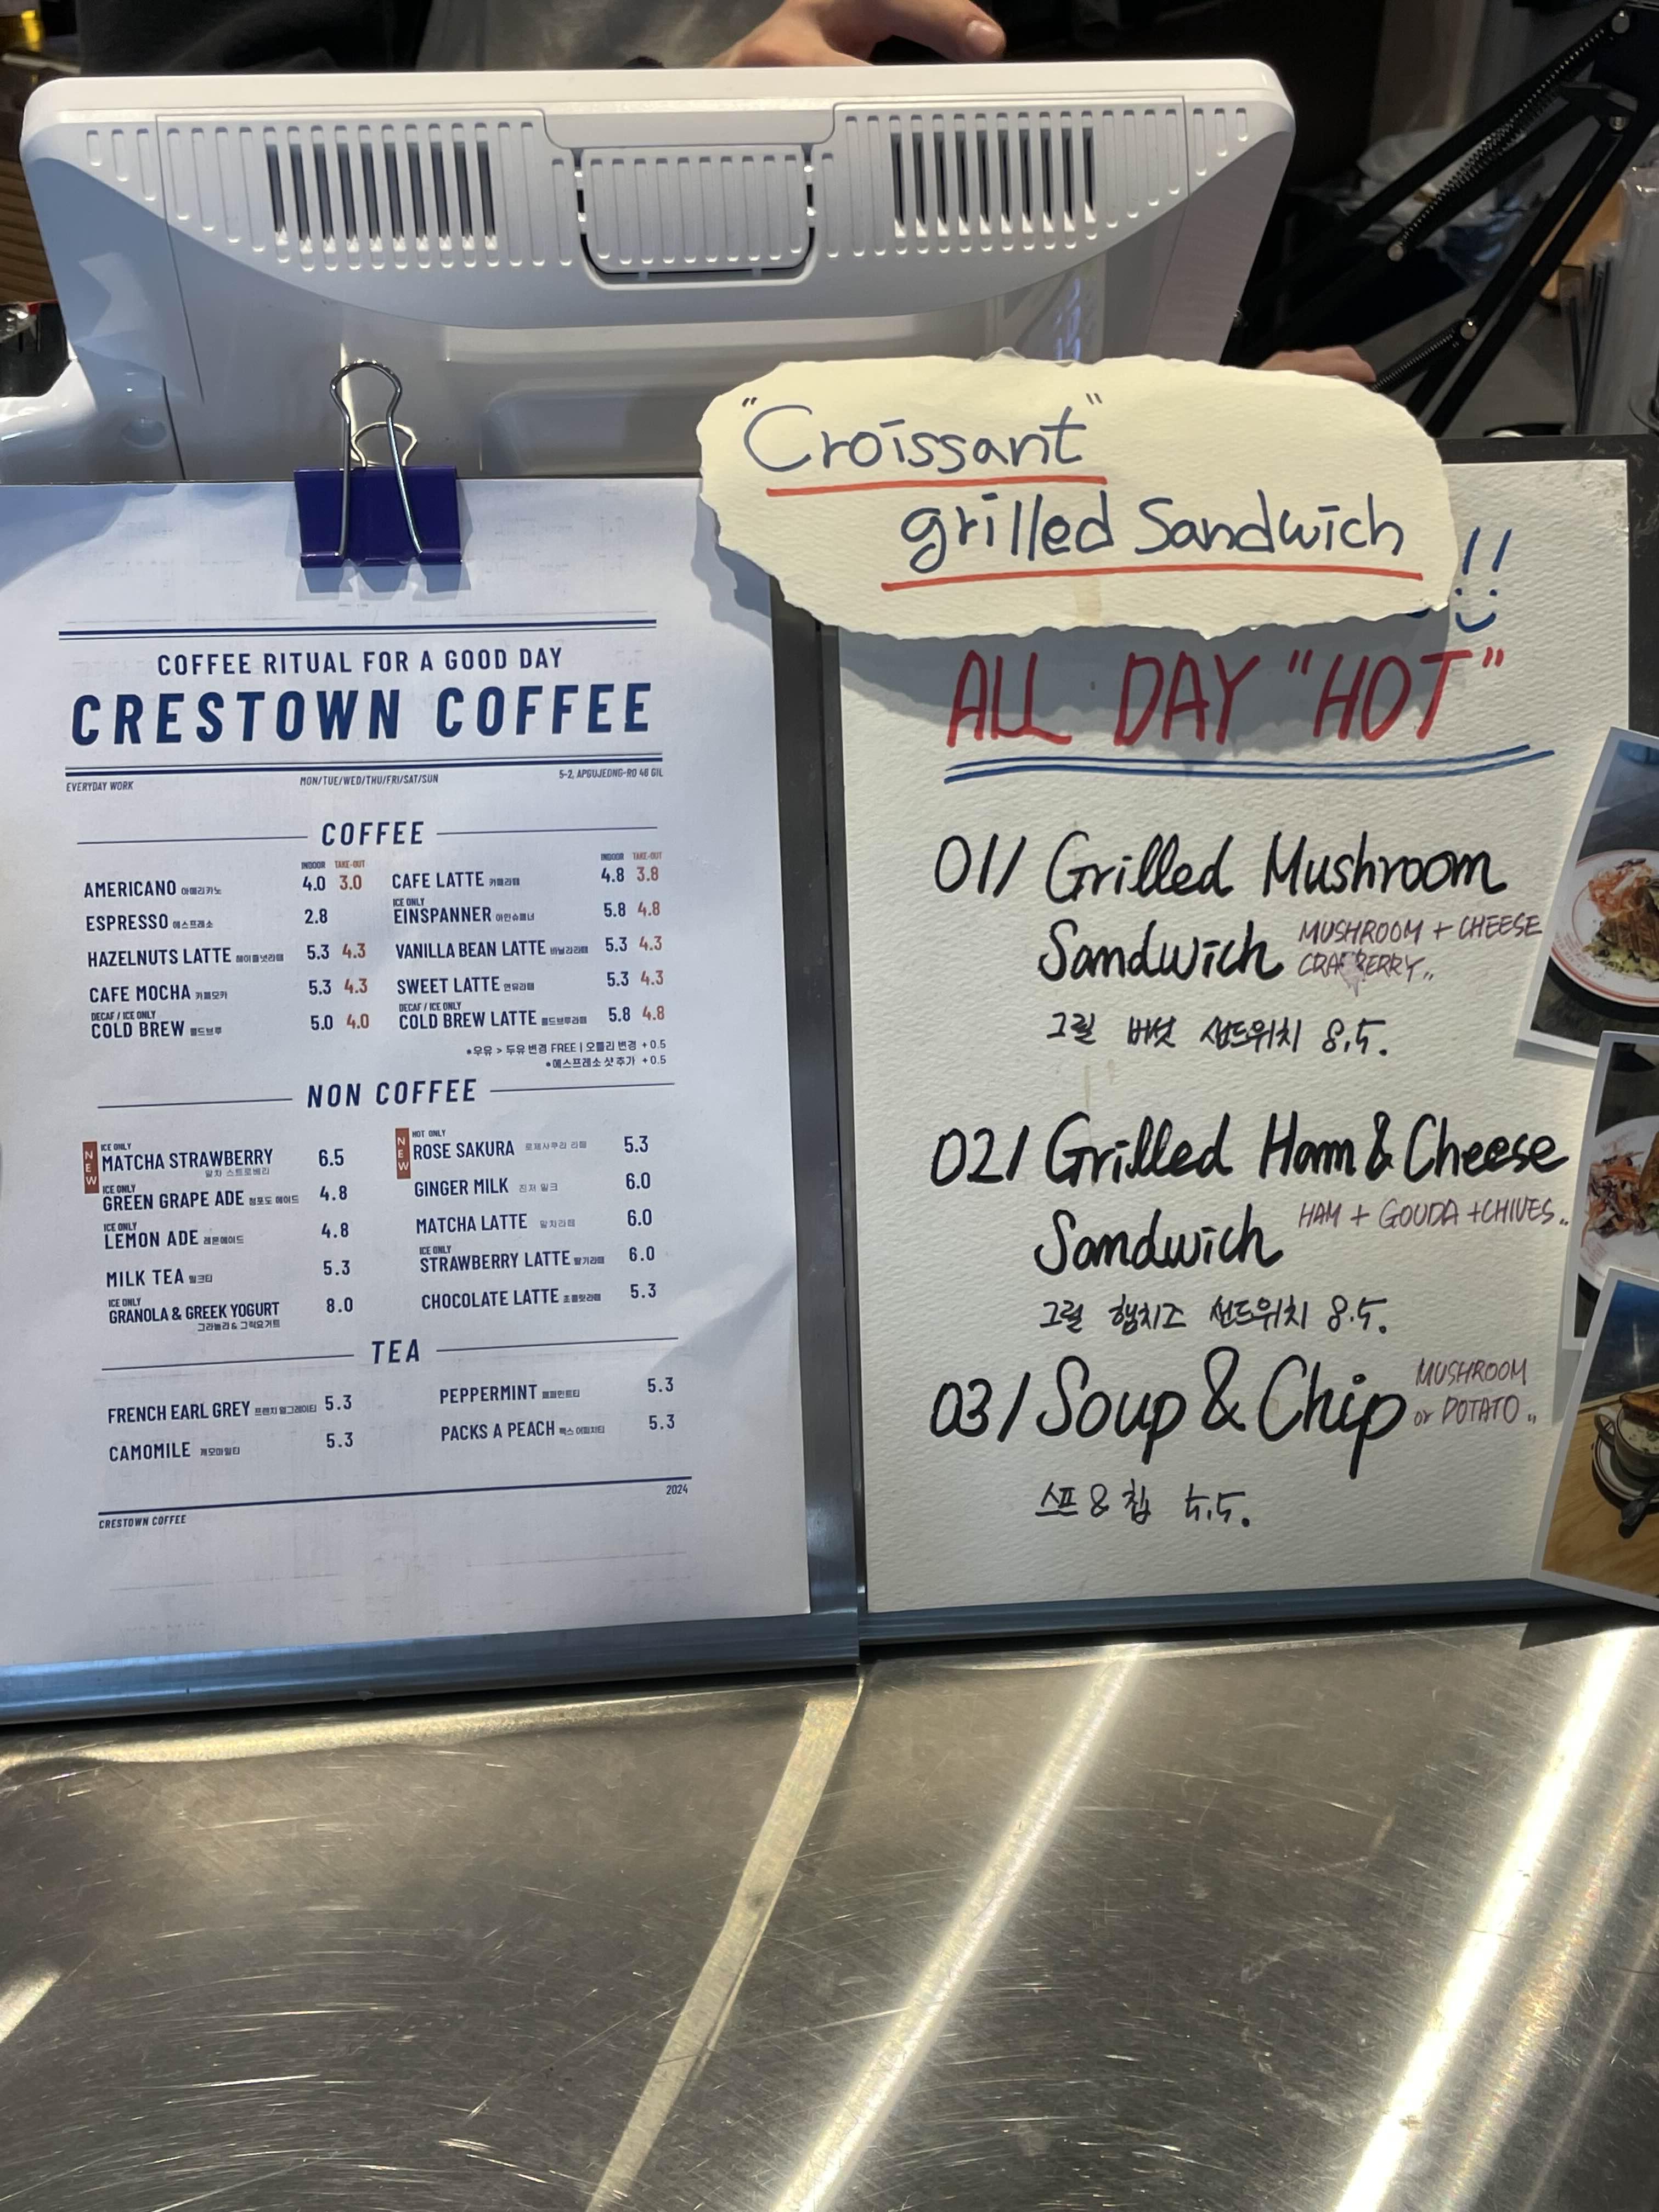 COFFEE RITUAL FOR A GOOD DAY
CRESTOWN COFFEE
EVERYDAY WORK MON/TUE/WED/THU/FRI/SAT/SUN 5-2, APGUJEONG-RO 46 GIL
COFFEE
INDOOR TAKE-OUT
AMERICANO 아메리카노 4.0 3.0
ESPRESSO 에스프레소 2.8
HAZELNUTS LATTE 헤이즐넛라떼 5.3 4.3
CAFE MOCHA 카페모카 5.3 4.3
DECAF / ICE ONLY
COLD BREW 콜드브루 5.0 4.0
INDOOR TAKE-OUT
CAFE LATTE 카페라떼 4.8 3.8
ICE ONLY
EINSPANNER 아인슈페너 5.8 4.8
VANILLA BEAN LATTE 바닐라라떼 5.3 4.3
SWEET LATTE 연유라떼 5.3 4.3
DECAF / ICE ONLY
COLD BREW LATTE 콜드브루라떼 5.8 4.8
*우유 > 두유 변경 FREE | 오틀리 변경 +0.5
*에스프레소 샷 추가 +0.5
NON COFFEE
NEW
ICE ONLY
MATCHA STRAWBERRY 6.5
말차 스트로베리
ICE ONLY
GREEN GRAPE ADE 청포도 에이드 4.8
ICE ONLY
LEMON ADE 레몬에이드 4.8
MILK TEA 밀크티 5.3
ICE ONLY
GRANOLA & GREEK YOGURT 8.0
그라놀라 & 그릭요거트
NEW
HOT ONLY
ROSE SAKURA 로제사쿠라 라떼 5.3
GINGER MILK 진저 밀크 6.0
MATCHA LATTE 말차라떼 6.0
ICE ONLY
STRAWBERRY LATTE 딸기라떼 6.0
CHOCOLATE LATTE 초콜릿라떼 5.3
TEA
FRENCH EARL GREY 프렌치 얼그레이티 5.3
CAMOMILE 캐모마일티 5.3
PEPPERMINT 페퍼민트티 5.3
PACKS A PEACH 팩스 어피치티 5.3
2024
CRESTOWN COFFEE
"Croissant"
grilled Sandwich
!!
ALL DAY "HOT"
01/ Grilled Mushroom
Sandwich MUSHROOM + CHEESE
CRANBERRY..
그릴 버섯 샌드위치 8.5.
02/ Grilled Ham & Cheese
Sandwich HAM + GOUDA +CHIVES..
그릴 햄치즈 샌드위치 8.5.
03/ Soup & Chip MUSHROOM
or POTATO..
스프 & 칩 5.5.